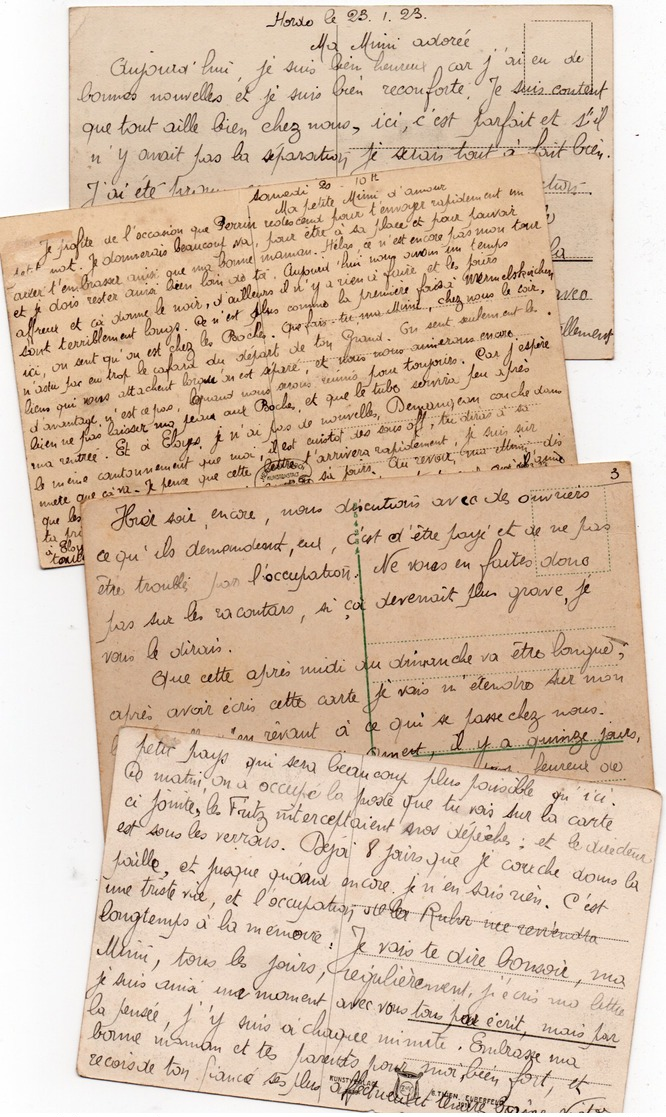 Hordo le 23.1.23.
Ma Mimi adorée
Aujourd'hui, je suis bien heureux car j'ai eu de
bonnes nouvelles et je suis bien reconforté. Je suis content
que tout aille bien chez nous, ici, c'est parfait et s'il
n'y avait pas la séparation, je serais tout à fait bien.
J'ai été
la
avec
samedi 20 - 10 h
Ma petite Mimi d'amour
Je profite de l'occasion que Perrin redescend pour t'envoyer rapidement un
petit mot. Je donnerais beaucoup va, pour être à sa place et pour pouvoir
aller t'embrasser ainsi que ma bonne maman. Hélas, ce n'est encore pas mon tour
et je dois rester ainsi bien loin de toi. Aujourd'hui nous avons un temps
affreux et ça donne le noir, d'ailleurs il n'y a rien à faire et les jours
sont terriblement longs. Ce n'est plus comme la première fois à Wermelskirchen,
ici, on sent qu'on est chez les Boches. Que fais-tu ma Mimi, chez nous le soir,
n'as tu pas eu trop le cafard du départ de ton Grand. On sent seulement les
liens qui vous attachent lorsqu'on est séparé, et nous nous aimerons encore
d'avantage n'est ce pas, quand nous serons réunis pour toujours. Car j'espère
bien ne pas laisser ma peau aux Boches, et que le tube suivra peu après
ma rentrée. Et à Eloyes, je n'ai pas de nouvelles, Demangeon couche dans
le même cantonnement que moi, il est cuistot des sous off, tu diras à sa
mère que ça va. Je pense que cette lettre t'arrivera rapidement, je suis sûr
que les six jours. Au revoir, ma Mimi, dis
3
Hier soir, encore, nous discutions avec des ouvriers
ce qu'ils demandent, eux, c'est d'être payé et de ne pas
être troublé par l'occupation. Ne vous en faites donc
pas sur les racontars, si ça devenait plus grave, je
vous le dirais.
Que cette après midi du dimanche va être longue;
après avoir écris cette carte je vais m'étendre sur mon
en rêvant à ce qui se passe chez nous.
il y a quinze jours,
heureux de
petit pays qui sera beaucoup plus paisible qu'ici.
Ce matin, on a occupé la poste que tu vois sur la carte
ci jointe, les Fritz interceptaient nos dépêches; et le directeur
est sous les verrous. Déjà 8 jours que je couche dans la
paille, et jusque quand encore, je n'en sais rien. C'est
une triste vie, et l'occupation de la Ruhr me reviendra
longtemps à la mémoire. Je vais te dire bonsoir, ma
Mimi, tous les jours, régulièrement, j'écris ma lettre
je suis ainsi un moment avec vous tous par écrit, mais par
la pensée, j'y suis à chaque minute. Embrasse ma
bonne maman et tes parents pour moi, bien fort, et
reçois de ton fiancé ses plus affectueux